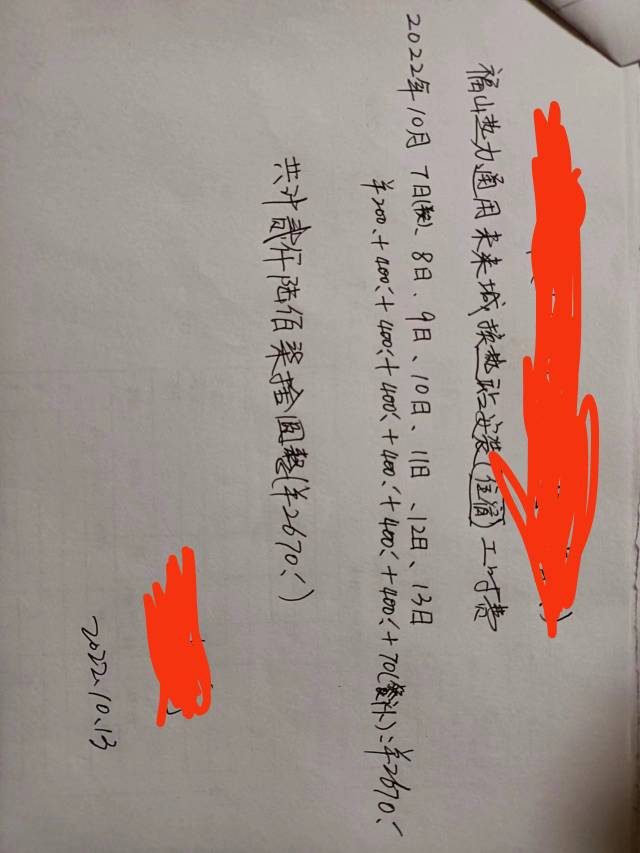 福山热力通用未来城换热站安装(住宿)工时费
2022年10月 7日、8日、9日、10日、11日、12日、13日
¥200.+400.+400.+400.+400.+400.+400.+70(餐补)=¥2670.
共计贰仟陆佰柒拾圆整(¥2670.)
2022.10.13